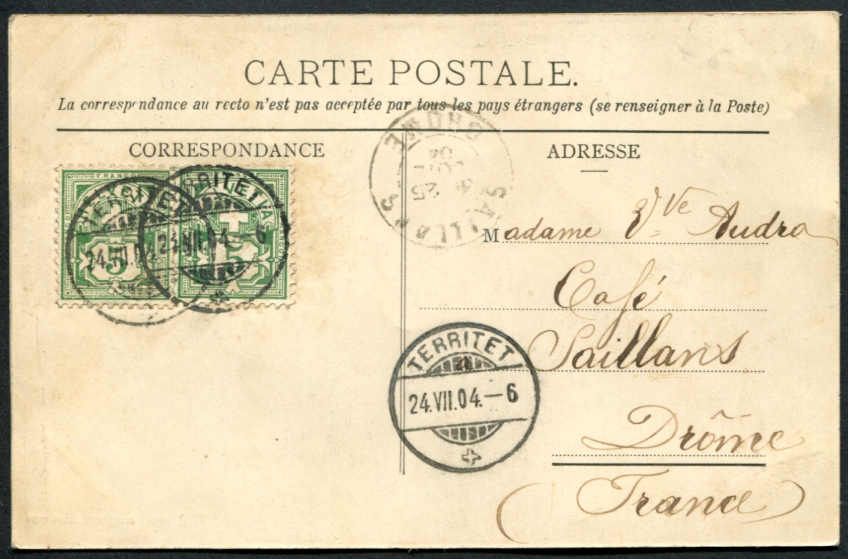 CARTE POSTALE.
La correspondance au recto n'est pas acceptée par tous les pays étrangers (se renseigner à la Poste)
CORRESPONDANCE
ADRESSE
FRANCO
5
5
TERRITET
24.VII.04.
TERRITET
24.VII.04.–6
SAILLANS
DROME
25
04
Madame Vve Audra
Café
Saillans
Drôme
(France)
TERRITET
24.VII.04.–6